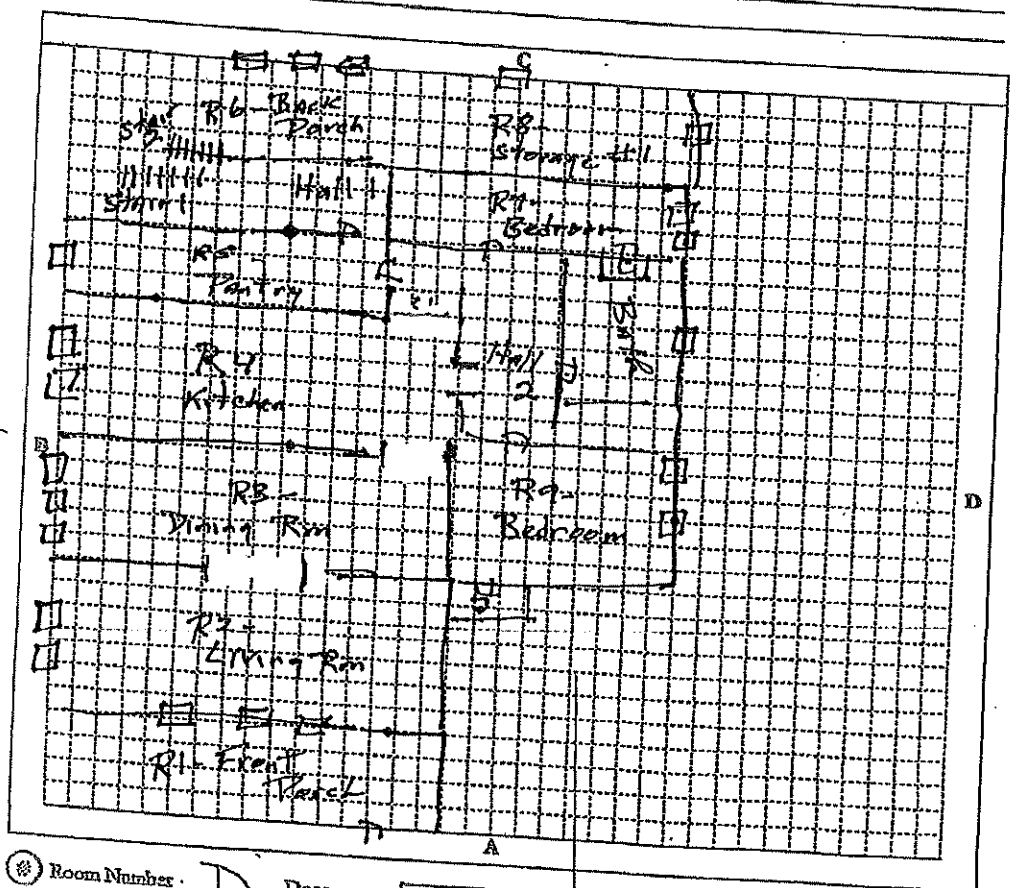 C
R6- Back
Porch
Stair
2
Hall 1
Stair 1
R8-
Storage #1
R7-
Bedroom
R5-
Pantry
Bath
R4
Kitchen
Hall
2
B
R3-
Dining Rm
R9-
Bedroom
D
R2-
Living Rm
R1- Front
Porch
A
# Room Number